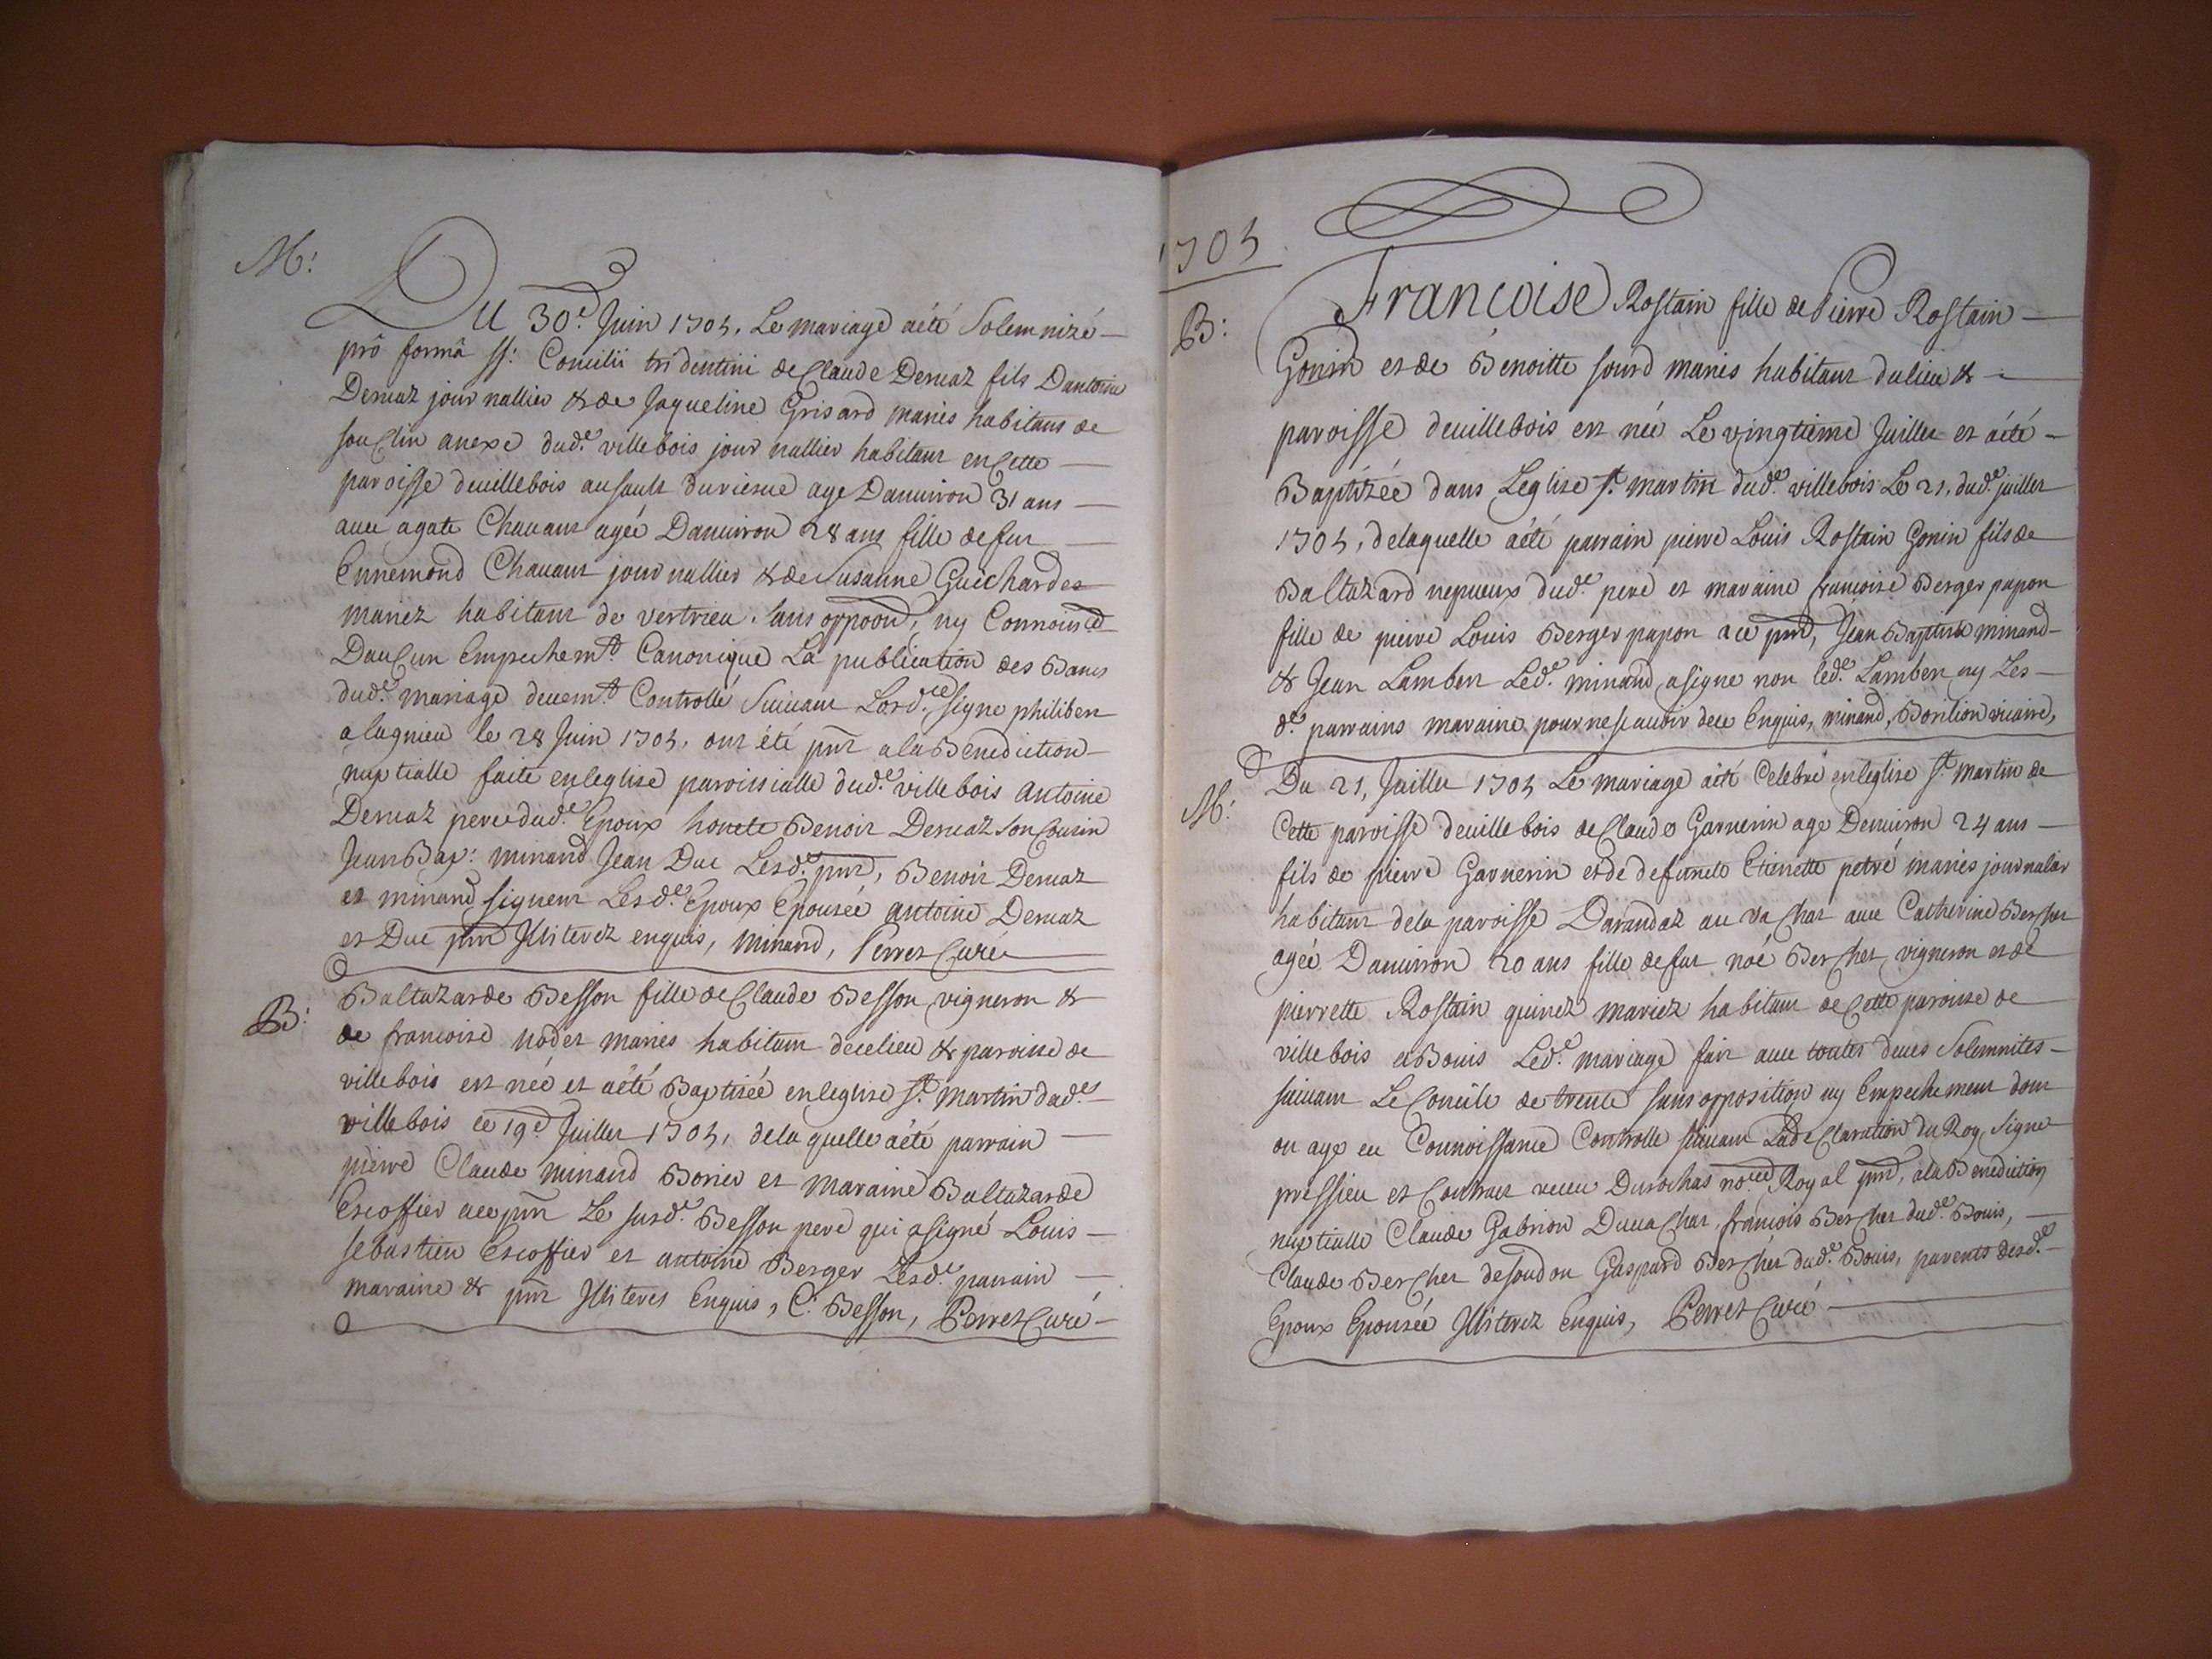 M:
Du 30.e Juin 1705. Le mariage aété Solemnizé
prô formâ ss: Concilii tridentini de Claude Deruaz fils Dantoine
Deruaz journallier & de Jaqueline Grisard mariés habitans de
souClin anexe dud.e villebois journallier habitant en Cette
paroisse deuillebois au sault age Danuiron 31 ans
auec agate Chauant agée Danuiron 28 ans fille de feu
Ennemond Chauant journallier & de Susanne Guichardes
mariez habitant de vertrieu. sans oppoon, ny
DauCun Empechemt. Canonique La publication des Bancs
dud.e mariage deuemt. Controllé Suiuant Lord.ce signe philibert
a lagnieu le 28 Juin 1705. ont été pnt a la Benediction
nuptialle faite en leglise paroissialle dud.e villebois antoine
Deruaz pere dud.e Epoux Benoit Deruaz son Cousin
Jean Bap: minand Jean Duc Lesd.e pnt, Benoit Deruaz
et minand signent Lesd.es Epoux Epousée antoine Deruaz
et Duc pnt Illiterez enquis, minand, Perret Curé
B:
Baltazarde Besson fille de Claude Besson vigneron &
de francoise nodet mariés habitant decelieu & paroisse de
villebois est née et aété Baptisée en leglise St. martin dud.e
villebois le 19.e Juillet 1705, dela quelle aété parrain
pierre Claude minand Borier et maraine Baltazarde
Escoffier ace pnt Le susd.e Besson pere qui a signé Louis
sebastien Escoffier et antoine Berger Lesd.e parrain
maraine & pnt Illiteres Enquis, C. Besson, Perret Curé
1705
B:
Francoise Rostain fille de Pierre Rostain
Gonin et de Benoitte sourd mariés habitant dulieu &
paroisse deuillebois est née Le vingtieme Juillet et aété
Baptizée dans Leglise St. martin dud.e villebois Le 21. dud.e juillet
1705, delaquelle aété parrain pierre Louis Rostain Gonin fils de
Baltazard nepueux dud.e pere et maraine francoise Berger papon
fille de pierre Louis Berger papon a ce pnt, Jean Baptiste minand
& Jean Lambert Led.e minand a signe non led.e Lambert ny Les
d.e parrains maraine pour ne scauoir dece Enquis, minand, Borilion vicaire,
M:
Du 21, Juillet 1705 Le mariage aété Celebré en leglise St. martin de
Cette paroisse deuillebois de Claude Garnerin age Denuiron 24 ans
fils de pierre Garnerin et de defuncte Etienette petré mariés journalier
habitant dela paroisse Darandaz au vaChat auec Catherine BerChet
agée Danuiron 20 ans fille de fut noé BerChet vigneron et de
pierrette Rostain quinez mariez habitant de Cette paroisse de
villebois a Bouis Led.e mariage fait auec toutes deues Solemnites
suiuant Le Concile de trente sans opposition ny Empechement dont
on aye eu Connoissance Controlle suiuant La deClaration du Roy, signe
pressieu et Contract receu Durochas no.re Royal pnt, a la Benediction
nuptialle Claude Gabrion DuuaChat, francois BerChet dud.e Bouis,
Claude BerChet de soudon Gaspard BerChet dud.e Bouis, parents desd.e
Epoux Epousée Illiterez Enquis, Perret Curé